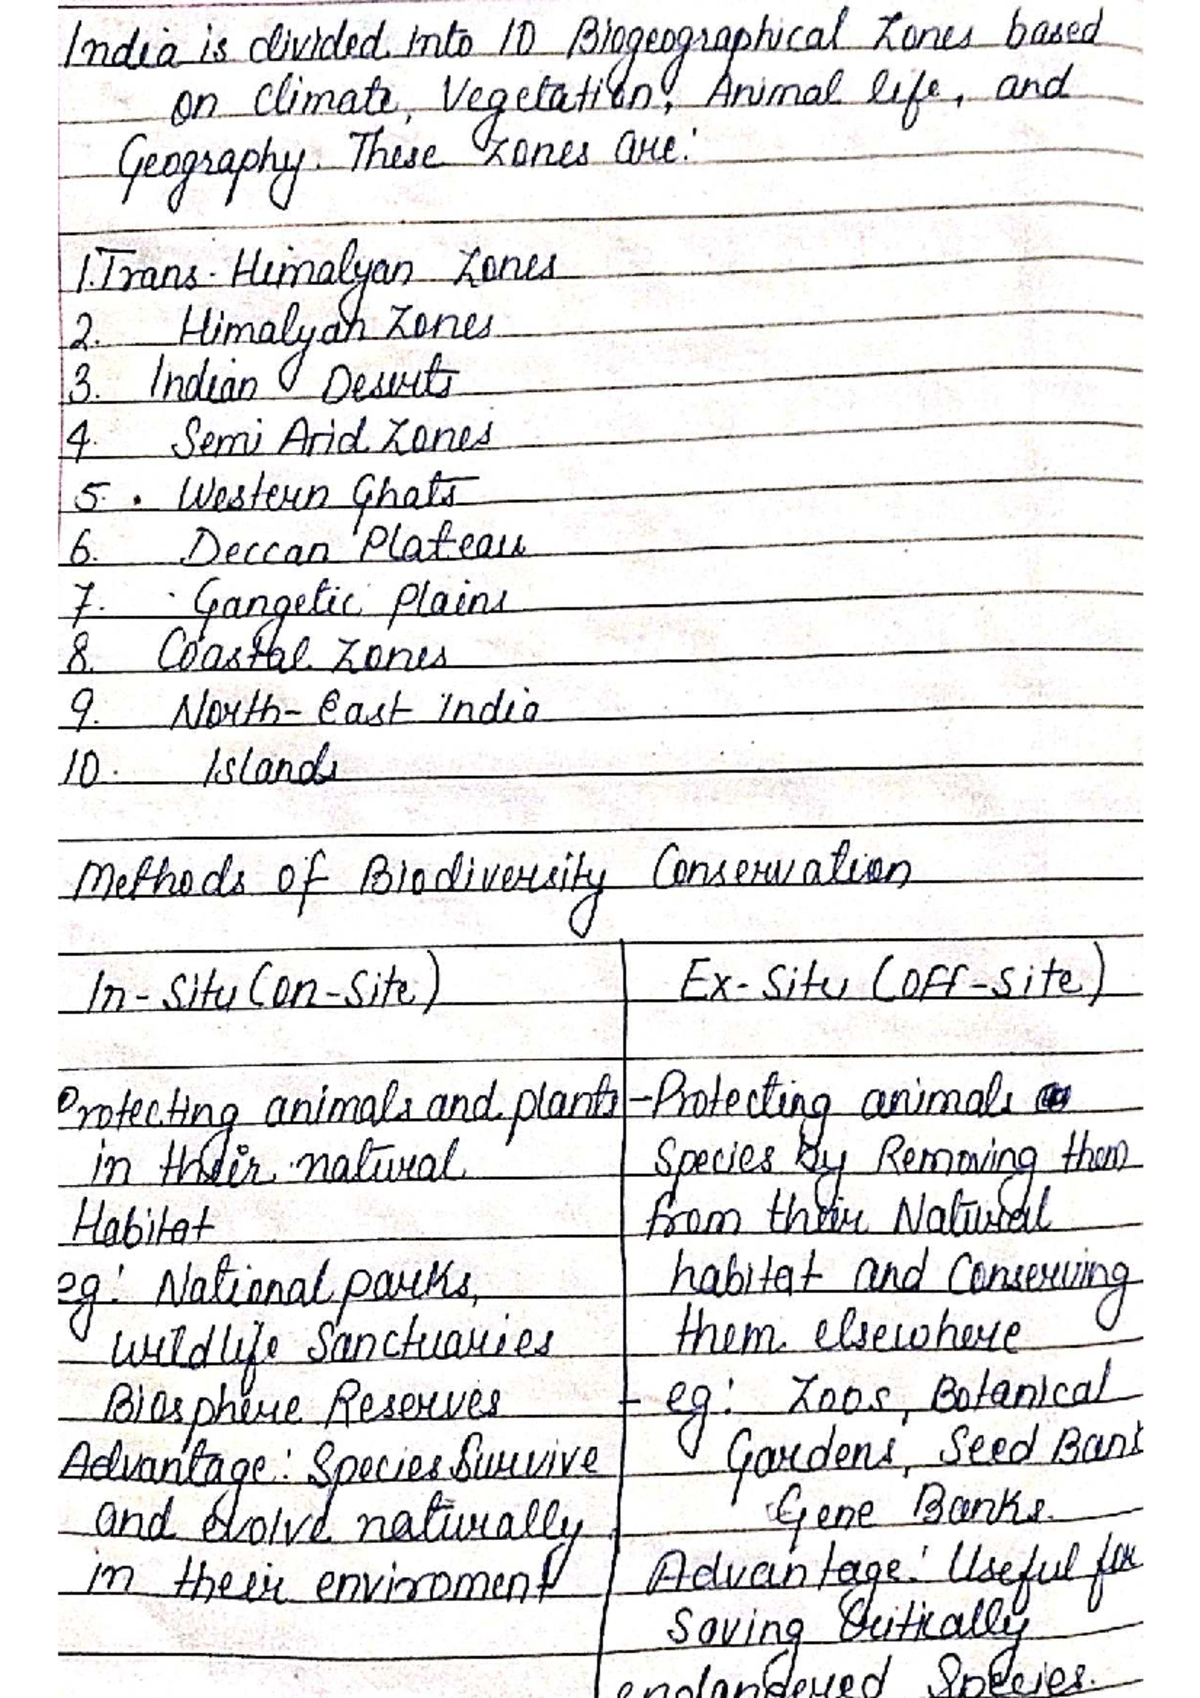 India is divided into 10 Biogeographical Zones based
on climate, Vegetation, Animal life, and
Geography. These Zones are:
1. Trans-Himalyan Zones
2. Himalyan Zones
3. Indian Deserts
4. Semi Arid Zones
5. Western Ghats
6. Deccan Plateau
7. Gangetic Plains
8. Coastal Zones
9. North-East India
10. Islands
Methods of Biodiversity Conservation
In-Situ (on-Site)
Protecting animals and plants
in their natural
Habitat
eg: National parks,
wildlife Sanctuaries
Biosphere Reserves
Advantage: Species Survive
and evolve naturally
in their enviroment
Ex-Situ (Off-site)
-Protecting animals
Species by Removing them
from their Natural
habitat and Conserving
them elsewhere
- eg: Zoos, Botanical
Gardens, Seed Bank
Gene Banks.
Advantage: Useful for
Saving Critically
endangered Species.